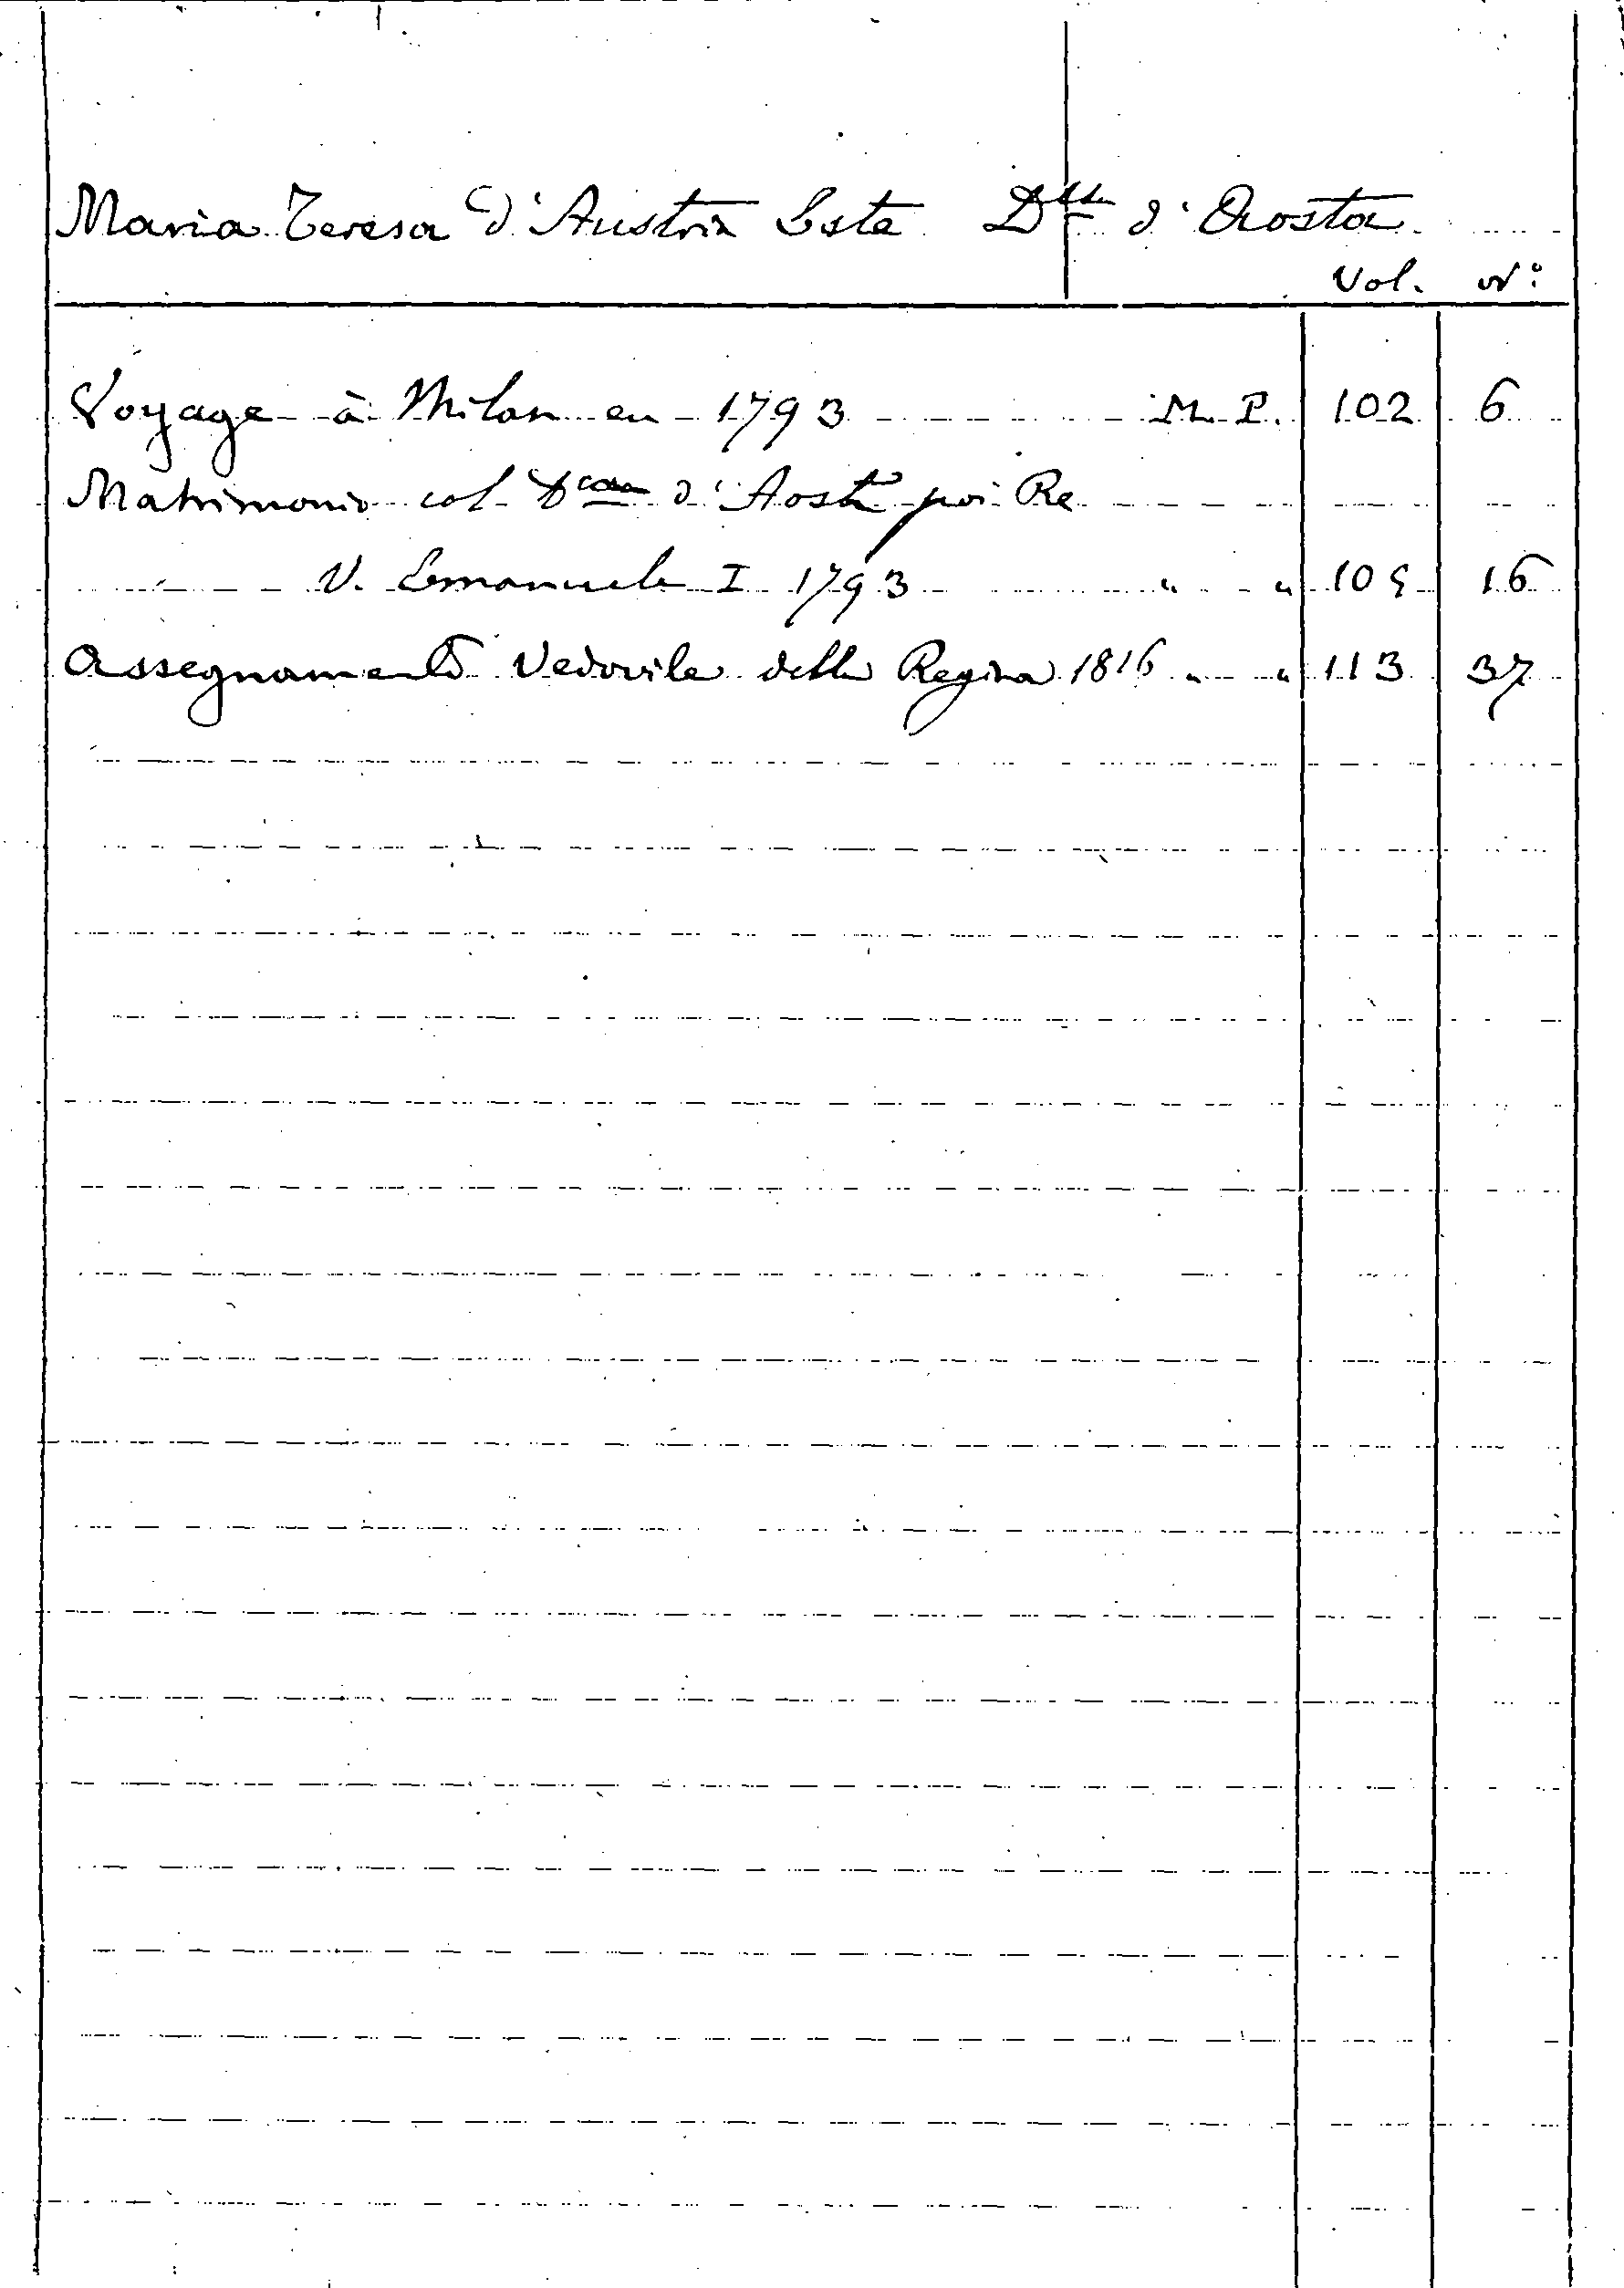 Maria Teresa d'Austria Este D.ssa d'Aosta
Vol. N°
Voyage à Milan en 1793 M. P. 102 6
Matrimonio col Duca d'Aosta poi Re
V. Emanuele I 1793 " " 109 16
Assegnamento Vedovile della Regina 1816 " " 113 37